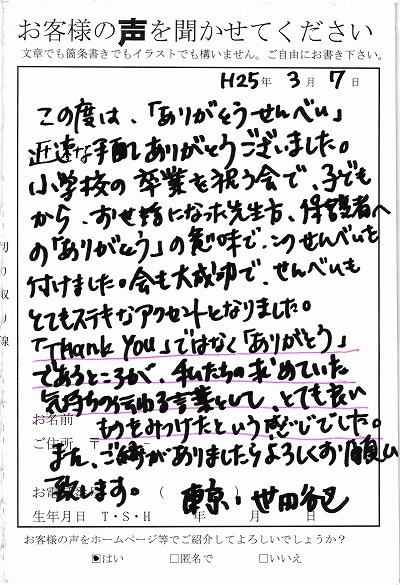 お客様の声を聞かせてください
文章でも箇条書きでもイラストでも構いません。ご自由にお書き下さい。
H25年 3月 7日
この度は、「ありがとうせんべい」
迅速な手配ありがとうございました。
小学校の卒業を祝う会で、子ども
から、お世話になった先生方、保護者へ
の「ありがとう」の意味で、このせんべいを
付けました。会も大成功で、せんべいも
とてもステキなアクセントとなりました。
「Thank You」ではなく「ありがとう」
であるところが、私たちの求めていた
気持ちの伝わる言葉として、とても良い
お名前
ものをみつけたという感じでした。
ご住所 〒 ー
また、ご縁がありましたらよろしくお願い
お電話番号 ( )
致します。 東京・世田谷区
生年月日 T・S・H 年 月 日
お客様の声をホームページ等でご紹介してよろしいでしょうか?
はい □匿名で □いいえ
切り取り線